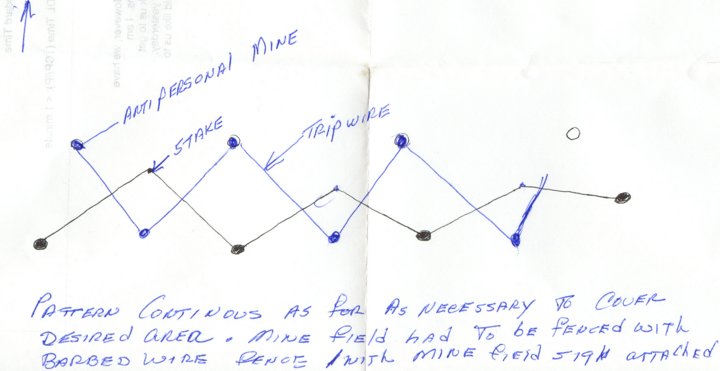 ANTIPERSONAL MINE
STAKE
TRIPWIRE
PATTERN CONTINOUS AS FOR AS NECESSARY TO COVER
DESIRED AREA. MINE FIELD HAD TO BE FENCED WITH
BARBED WIRE FENCE WITH MINE FIELD SIGN ATTACHED